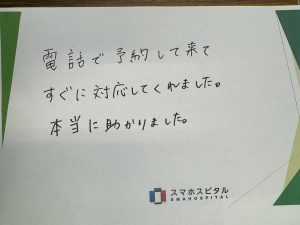 電話で予約して来て
すぐに対応してくれました。
本当に助かりました。
スマホスピタル
SMAHOSPITAL